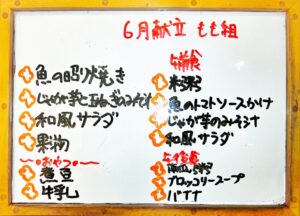 6月献立 もも組
魚の照り焼き
じゃが芋と玉ねぎのみそ汁
和風サラダ
果物
〜おやつ〜
煮豆
牛乳
午前食
米粥
魚のトマトソースかけ
じゃが芋のみそ汁
和風サラダ
午後食
粥
ブロッコリースープ
バナナ